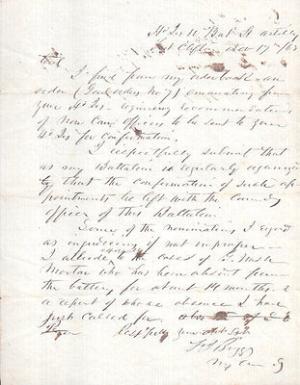 Hd Qrs 11 Bat. St Artillery
Oct 17th /63
I find from my order book an
order (Genl orders No 7) emanating from
your Hd Qrs requiring recommendations
of Non Com officers to be sent to your
Hd Qrs for confirmation.
I respectfully submit that
as my Battalion is regularly organized
that the confirmation of such ap-
pointments be left with the Comdg
officer of this Battalion.
Some of the nominations I regard
as injudicious if not improper
I allude to the cases of
Morton who has been absent from
the battery for about 14 months &
a report of whose absence I have
just called for
Respfully your obt Svt